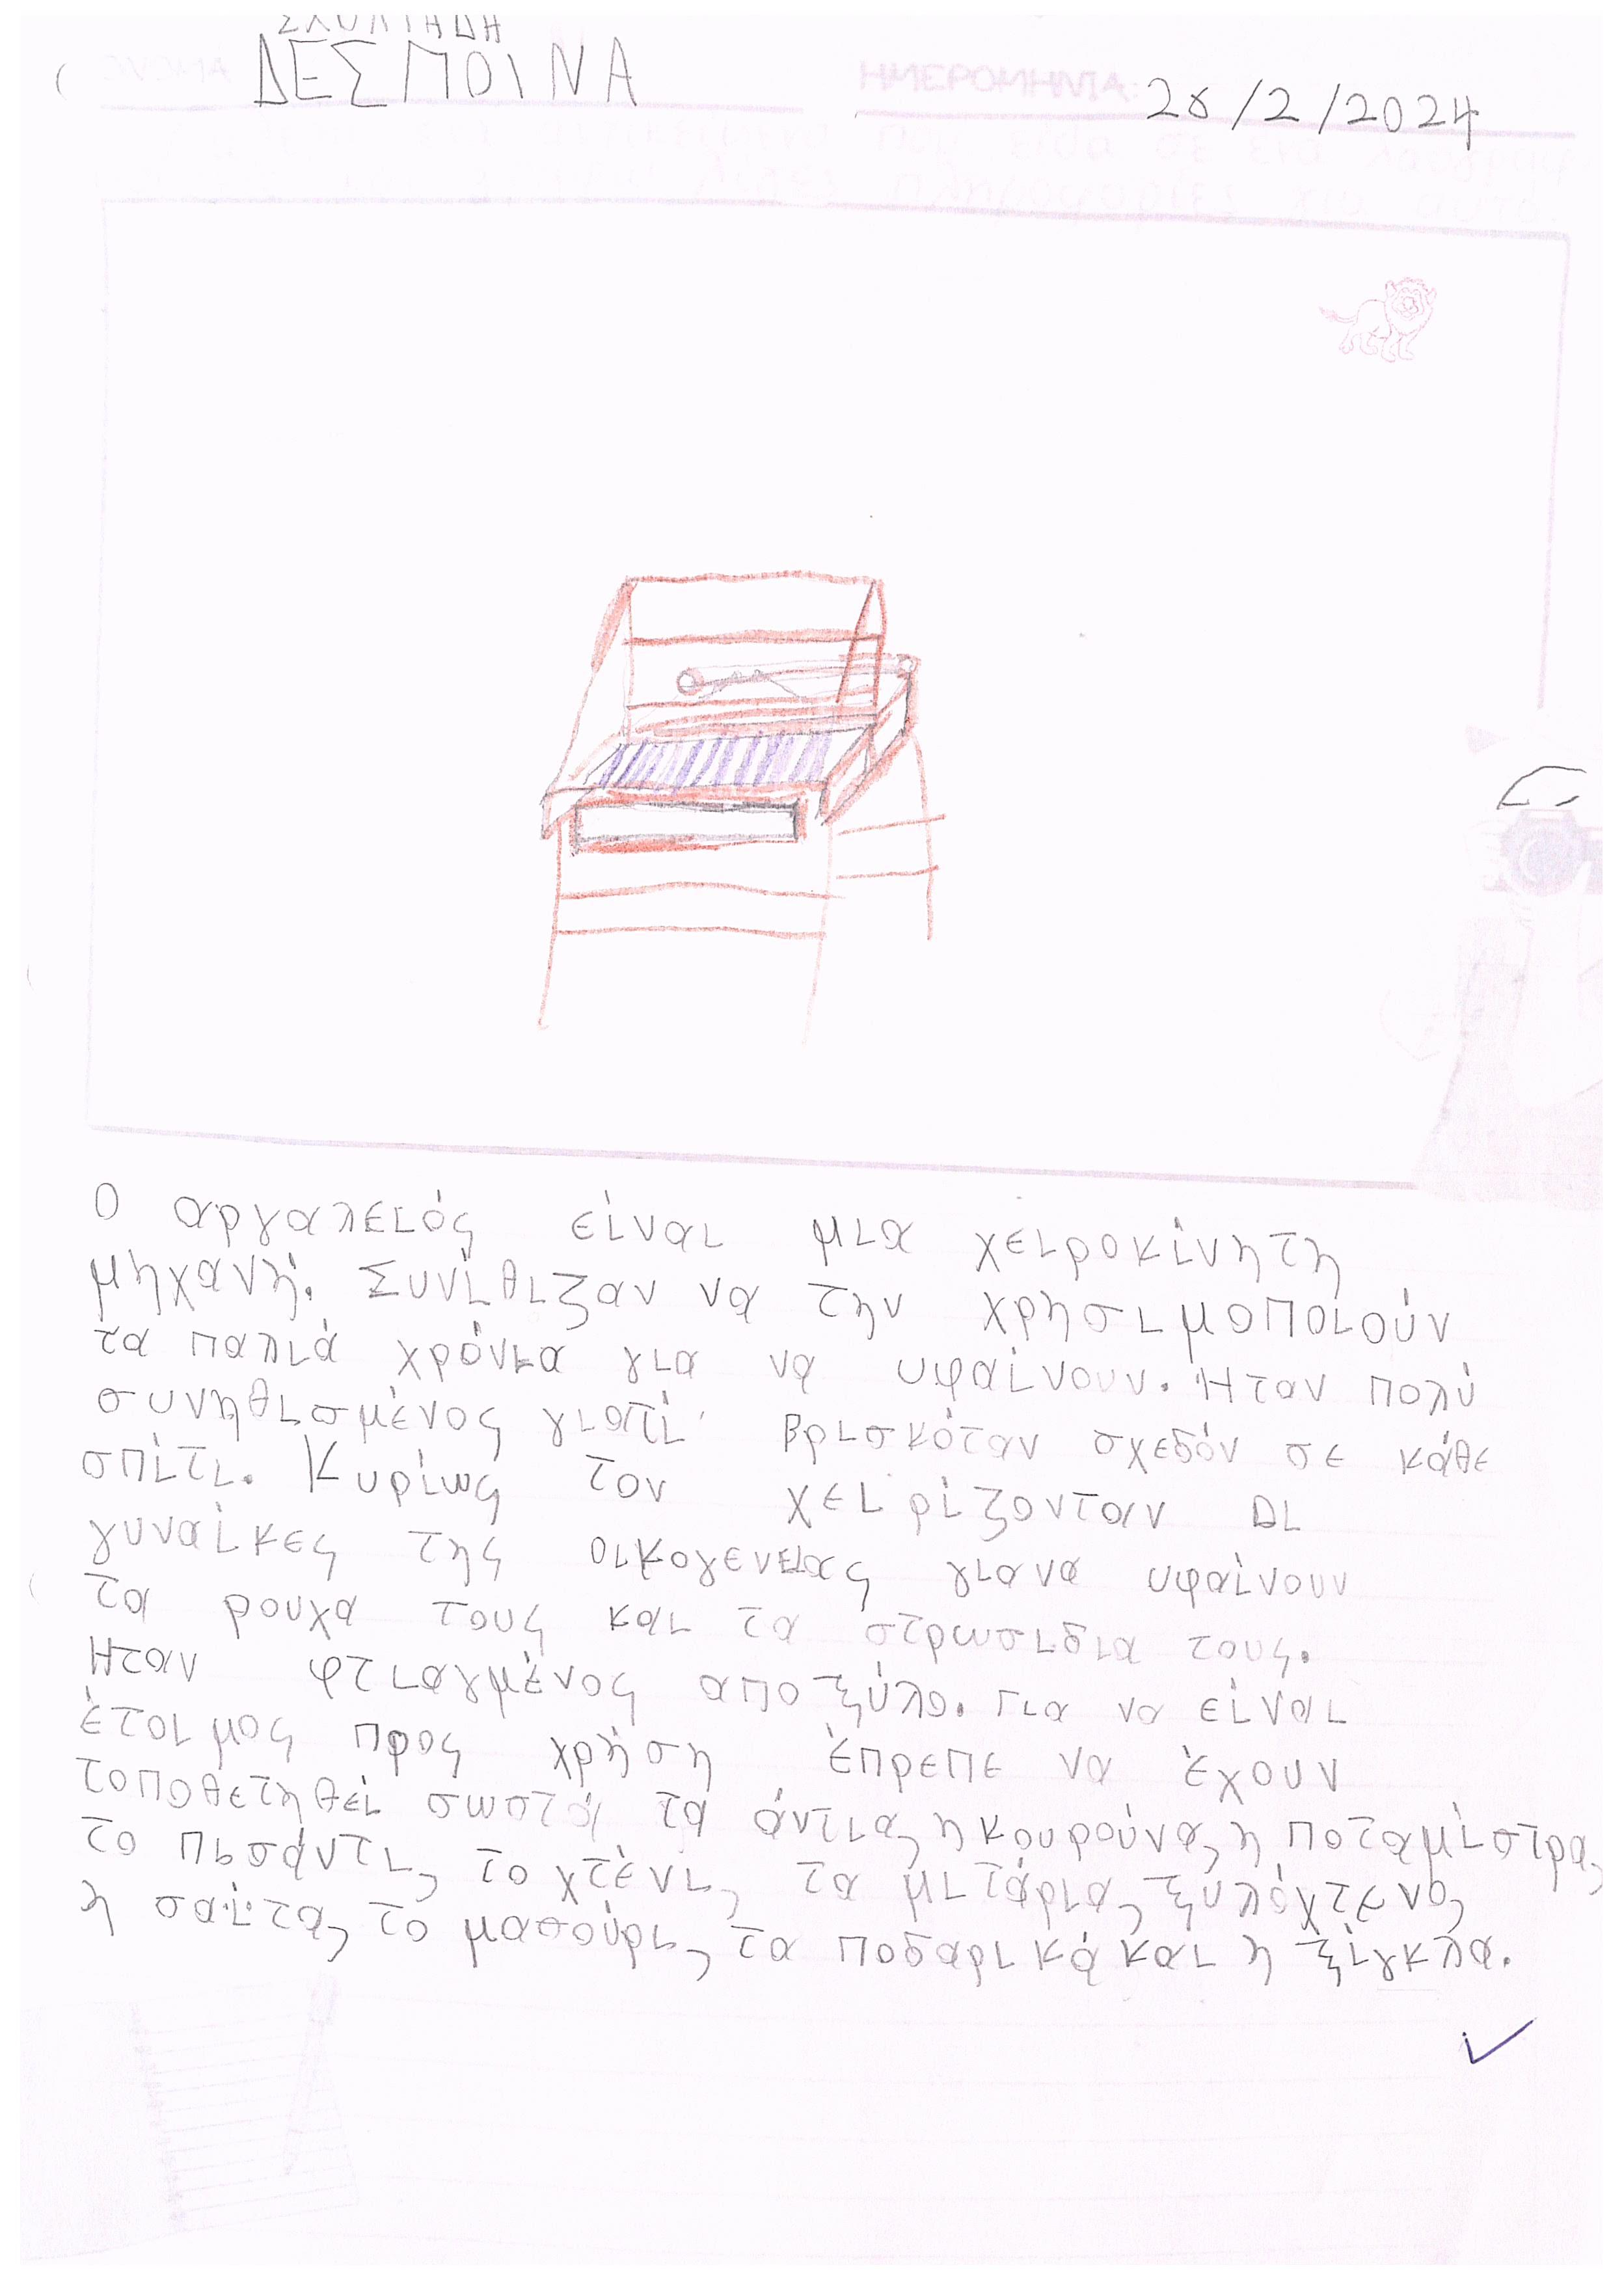 ΔΕΣΠΟΙΝΑ
ΗΜΕΡΟΜΗΝΙΑ: 28/2/2024
Ο αργαλειός είναι μια χειροκίνητη
μηχανή. Συνίθιζαν να την χρησιμοποιούν
τα παλιά χρόνια για να υφαίνουν. Ήταν πολύ
συνηθισμένος γιατί βρισκόταν σχεδόν σε κάθε
σπίτι. Κυρίως τον χειρίζονταν οι
γυναίκες της οικογενειας για να υφαίνουν
τα ρουχα τους και τα στρωσιδια τους.
Ηταν φτιαγμένος απο ξύλο. Για να είναι
έτοιμος προς χρήση έπρεπε να έχουν
τοποθετηθεί σωστά τα άντια, η κουρούνα, η ποταμίστρα,
το πισάντι, το χτένι, τα μιτάρια, ξυλόχτενο,
η σαΐτα, το μασούρι, τα ποδαρικά και η ξίγκλα.